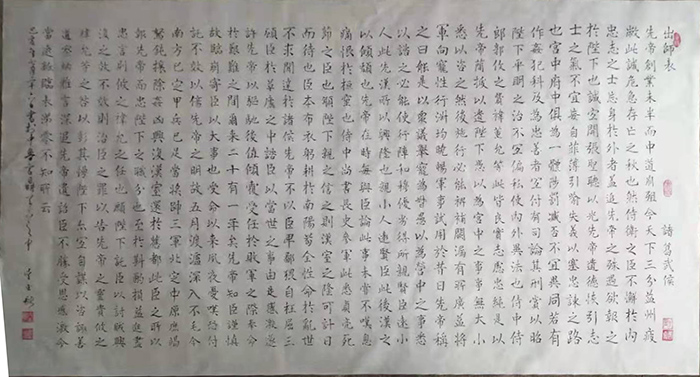 出師表 諸葛武侯
先帝創業未半而中道崩殂今天下三分益州疲
敝此誠危急存亡之秋也然侍衛之臣不懈於內
忠志之士忘身於外者蓋追先帝之殊遇欲報之
於陛下也誠宜開張聖聽以光先帝遺德恢弘志
士之氣不宜妄自菲薄引喻失義以塞忠諫之路
也宮中府中俱為一體陟罰臧否不宜異同若有
作姦犯科及為忠善者宜付有司論其刑賞以昭
陛下平明之治不宜偏私使內外異法也侍中侍
郎郭攸之費禕董允等此皆良實志慮忠純是以
先帝簡拔以遺陛下愚以為宮中之事事無大小
悉以咨之然後施行必能裨補闕漏有所廣益將
軍向寵性行淑均曉暢軍事試用於昔日先帝稱
之曰能是以眾議舉寵為督愚以為營中之事悉
以諮之必能使行陣和穆優劣得所親賢臣遠小
人此先漢所以興隆也親小人遠賢臣此後漢之
以傾頹也先帝在時每與臣論此事未嘗不嘆息
痛恨於桓靈也侍中尚書長史參軍此悉貞亮死
節之臣也願陛下親之信之則漢室之隆可計日
而待也臣本布衣躬耕於南陽苟全性命於亂世
不求聞達於諸侯先帝不以臣卑鄙猥自枉屈三
顧臣於草廬之中諮臣以當世之事由是感激遂
許先帝以驅馳後值傾覆受任於敗軍之際奉命
於危難之間爾來二十有一年矣先帝知臣謹慎
故臨崩寄臣以大事也受命以來夙夜憂嘆恐付
託不效以傷先帝之明故五月渡瀘深入不毛今
南方已定甲兵已足當獎帥三軍北定中原庶竭
駑鈍攘除姦凶興復漢室還於舊都此臣之所以
報先帝而忠陛下之職分也至於斟酌損益進盡
忠言則攸之禕允之任也願陛下託臣以討賊興
復之效不效則治臣之罪以告先帝之靈責攸之
禕允等之咎以彰其慢陛下亦宜自謀以諮諏善
道察納雅言深追先帝遺詔臣不勝受恩感激今
當遠離臨表涕零不知所云